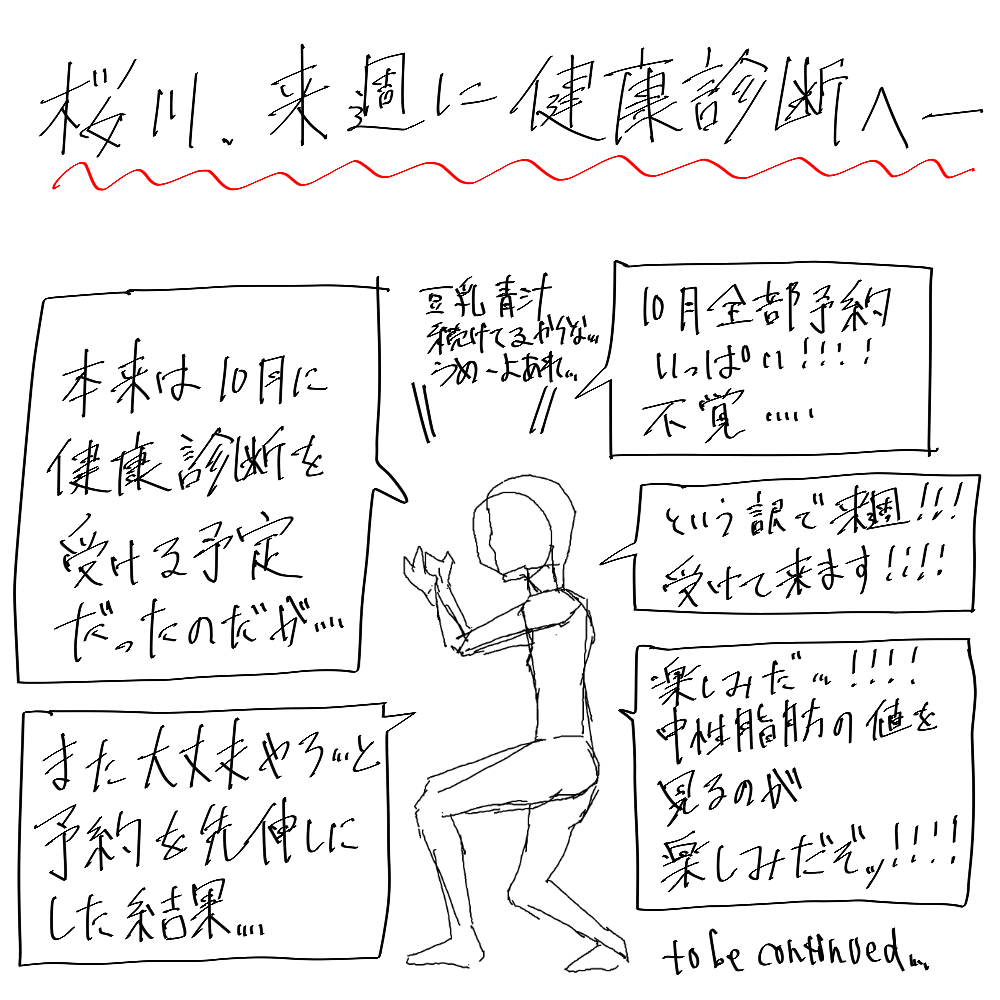 桜川、来週に健康診断へー
本来は10月に
健康診断を
受ける予定
だったのだが…
また大丈夫やろ…と
予約を先伸しに
した結果…
豆乳青汁
続けてるからな…
うめーよあれ…
10月全部予約
いっぱい!!!!
不覚……
という訳で来週!!!
受けて来ます!!!!
楽しみだ…!!!!
中性脂肪の値を
見るのが
楽しみだぞッ!!!!
to be continued…